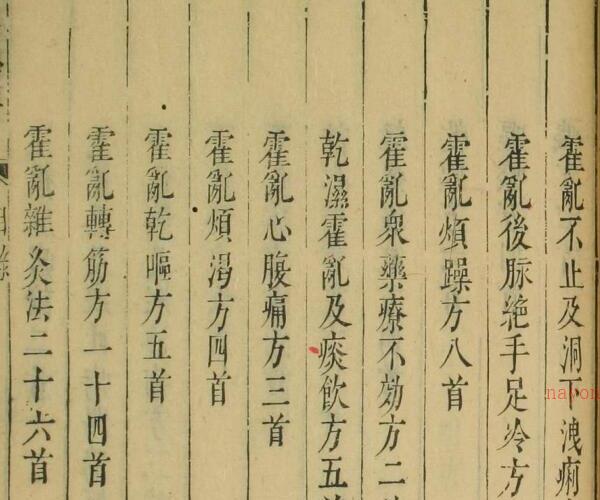 霍亂不止及洞下洩痢
霍亂後脉絶手足冷方
霍亂煩躁方八首
霍亂衆藥療不効方二
乾濕霍亂及痰飲方五首
霍亂心腹痛方三首
霍亂煩渴方四首
霍亂乾嘔方五首
霍亂轉筋方一十四首
霍亂雜灸法二十六首
目錄